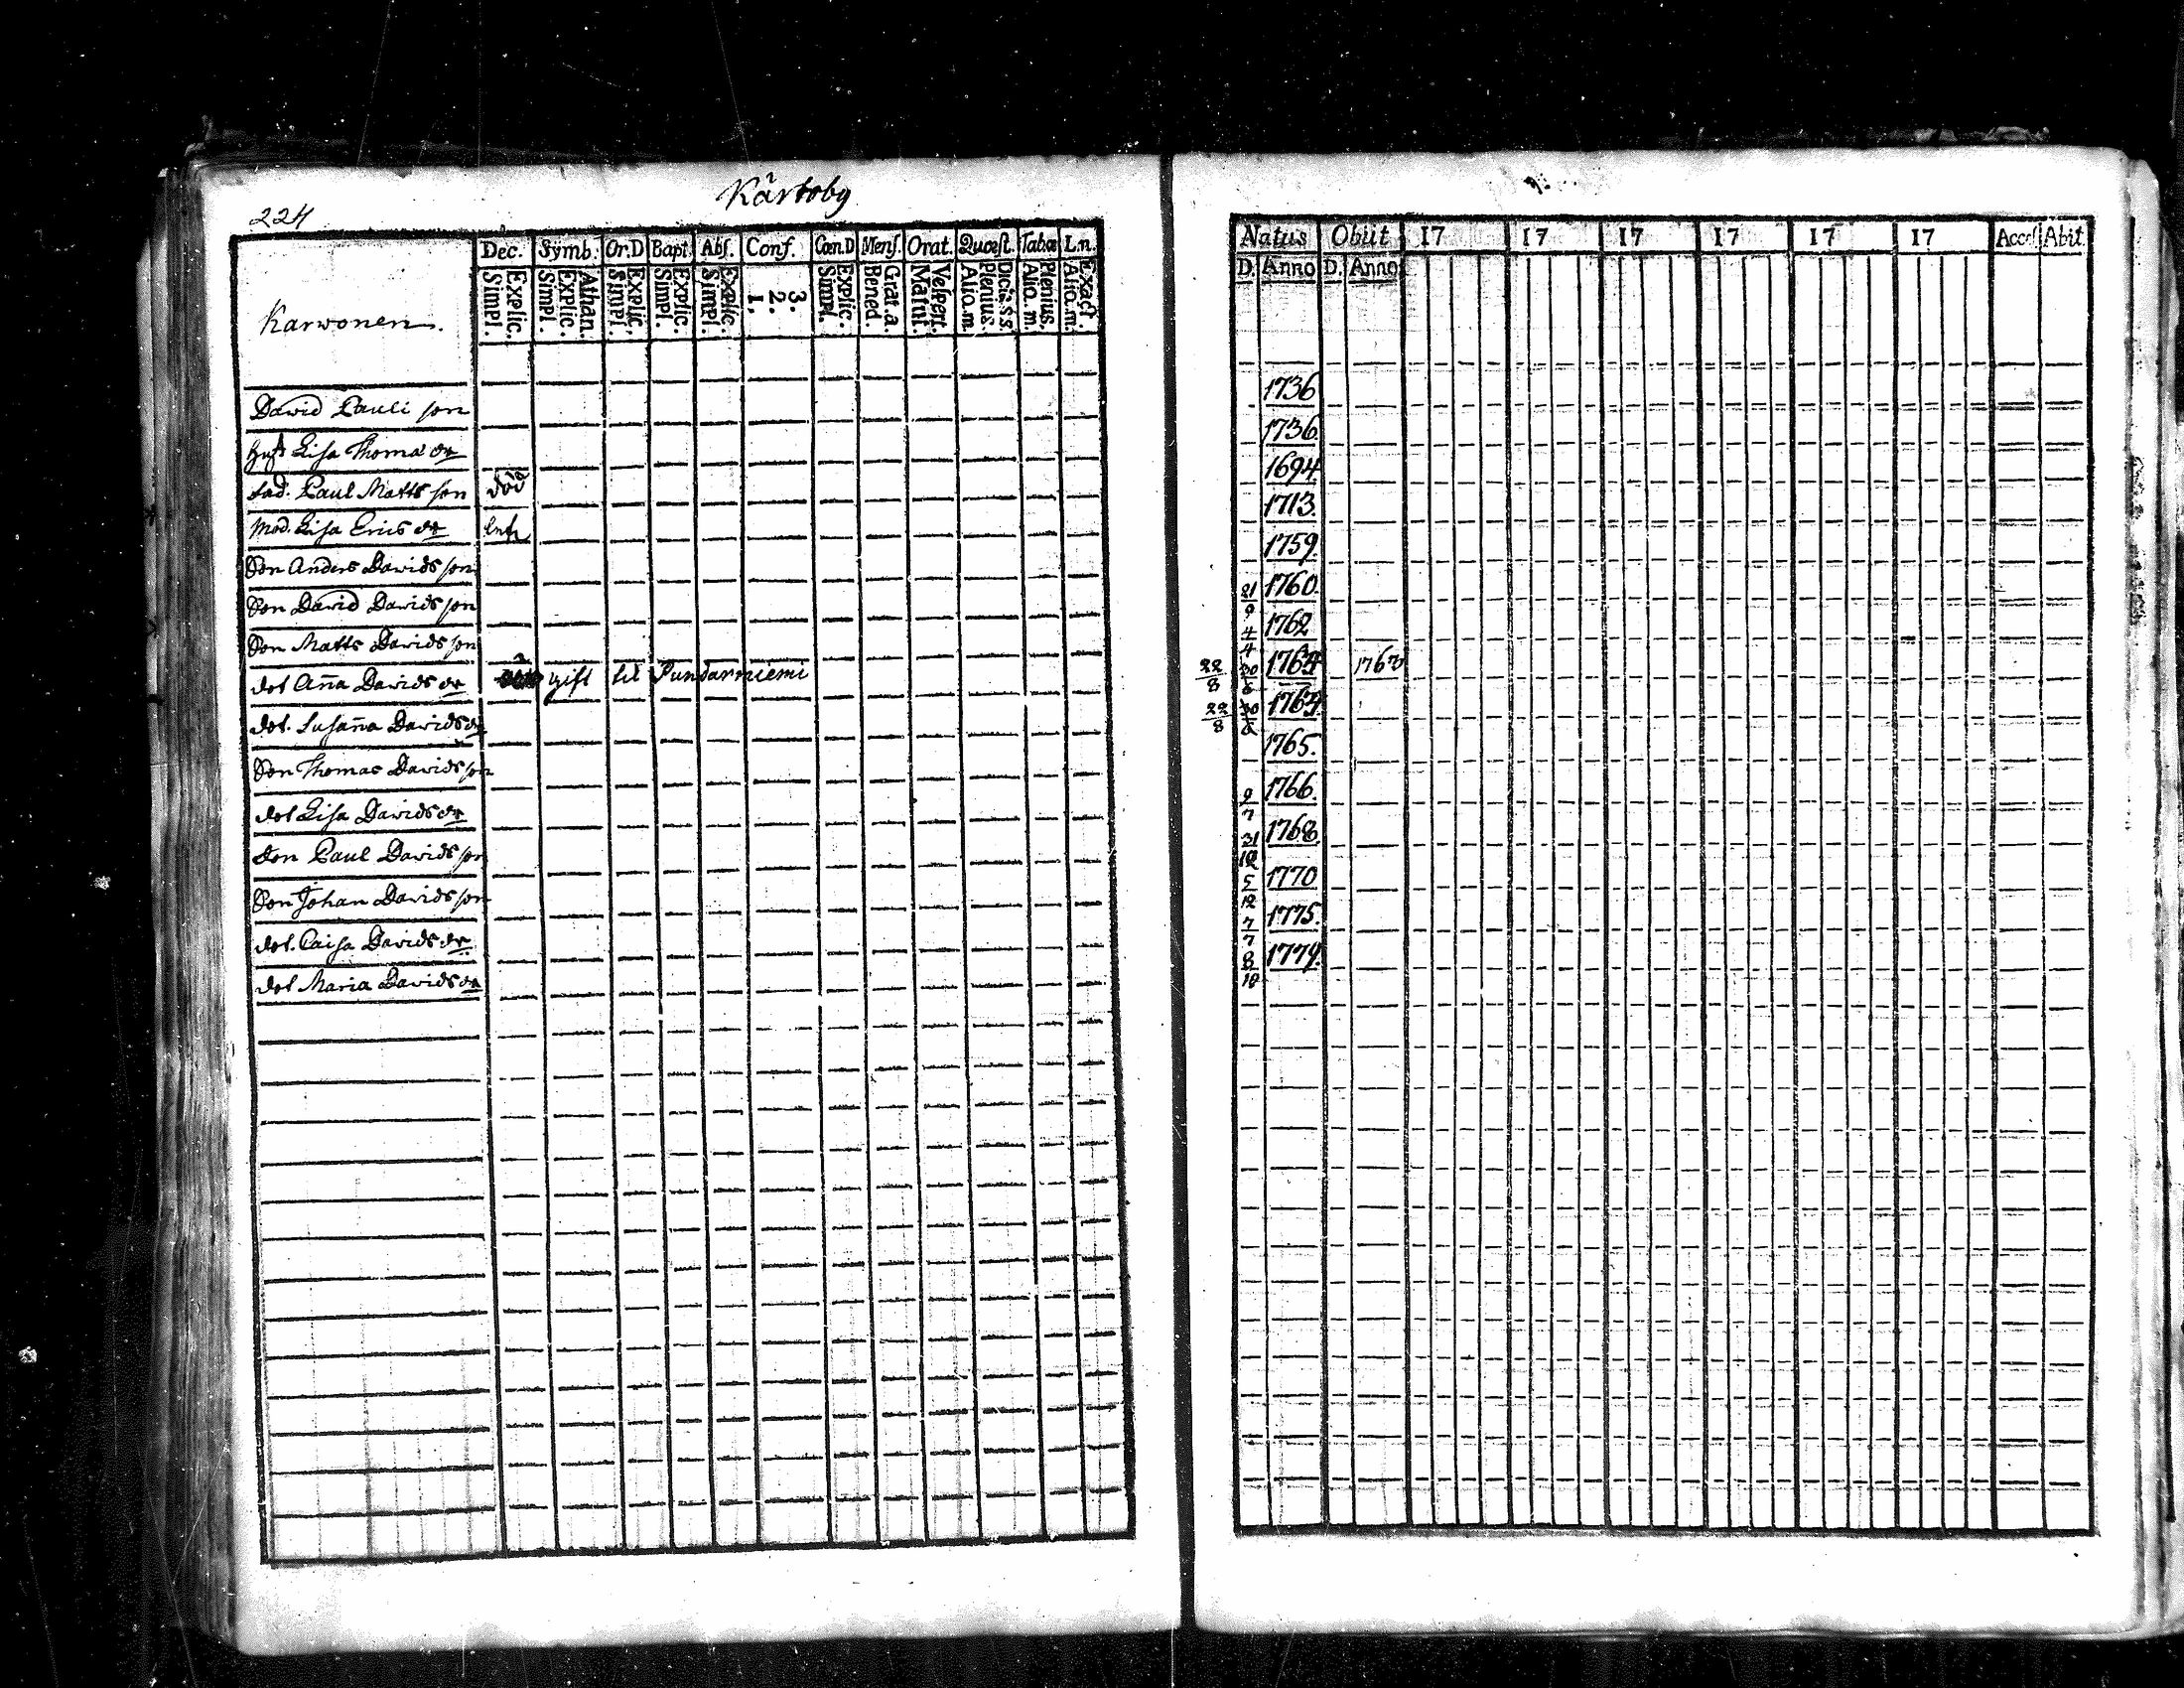 Kärtoby
224
Dec. Symb. Or.D Bapt. Abs. Conf. Cœn.D Mens. Orat. Quœst. Tabœ L.n.
Explic. Simpl. Athan. Explic. Simpl. Explic. Simpl. Explic. Simpl. Explic. Simpl. 3. 2. 1. Explic. Simpl. Grat.a. Bened. Vespert. Matut. Plenius. Aliq.m. Plenius. Aliq.m. Exact. Aliq.m.
Karwonen.
David Pauli son
Hust Lisa Thomæ dr
fad. Paul Matts son död
Mod. Lisa Erics dr enk
Son Anders Davids son
Son David Davids son
Son Matts Davids son
dot Aña Davids dr gift til Pundarniemi
dot. Susaña Davids dr
Son Thomas Davids son
dot Lisa Davids dr
Son Paul Davids son
Son Johan Davids son
dot. Caisa Davids dr
dot Maria Davids dr
Natus Obiit 17 17 17 17 17 17 Acces. Abit.
D. Anno D. Anno
1736
1736.
1694.
1713.
1759.
21/9 1760.
4/4 1762
22/8 30/8 1764 1763
22/8 30/8 1764.
1765.
9/7 1766.
31/12 1768.
5/12 1770
7/7 1775.
8/10 1779.